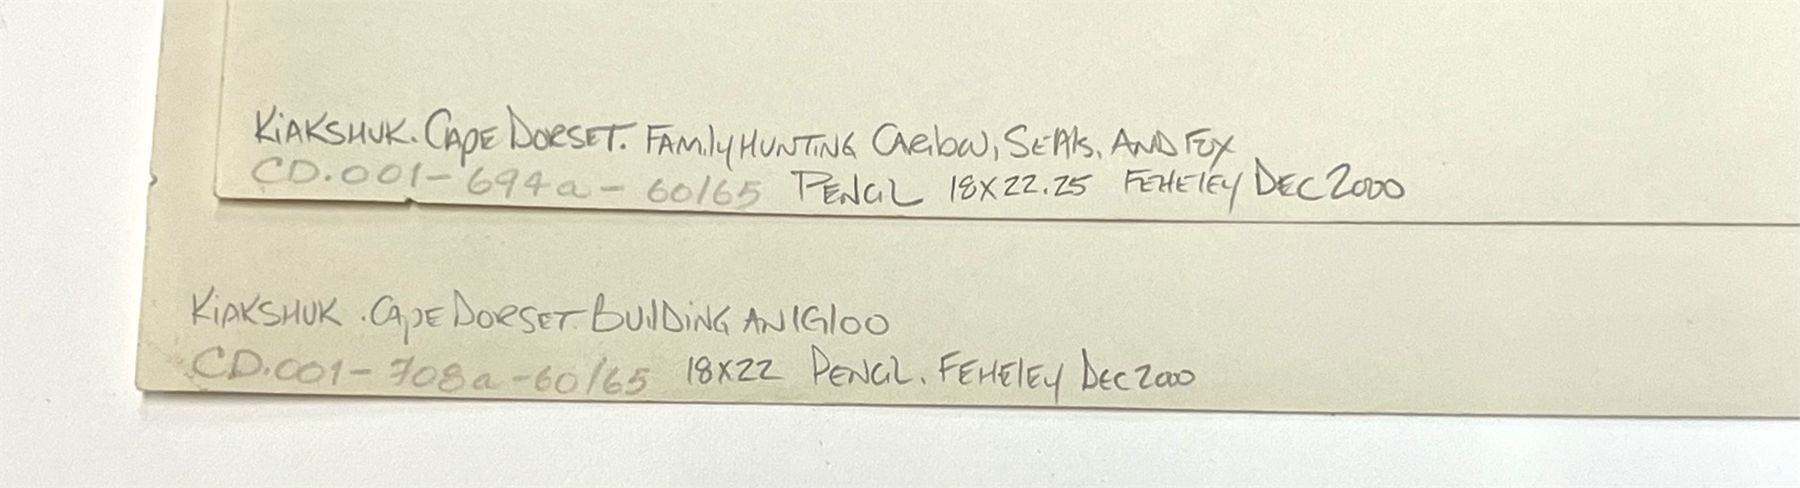 KIAKSHUK. CAPE DORSET. FAMILY HUNTING CARIBOU, SEALS, AND FOX
CD.001-694a-60/65 PENCIL 18X22.25 FEHELEY DEC 2000
KIAKSHUK. CAPE DORSET BUILDING AN IGLOO
CD.001-708a-60/65 18X22 PENCIL. FEHELEY DEC 2000